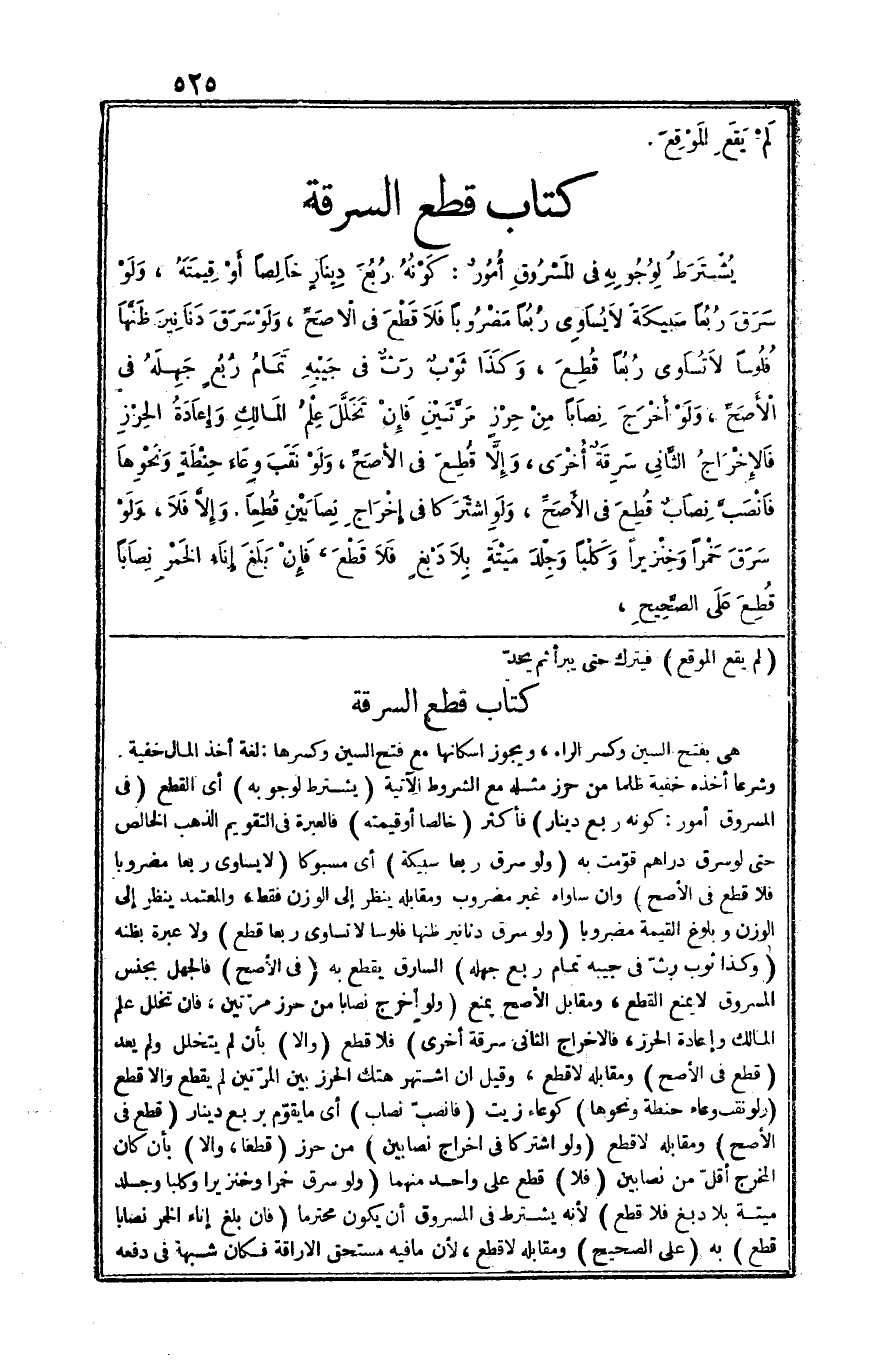 ٥٢٥
لَمْ يَقَعِ الْمَوْقِعَ .
كتاب قطع السرقة
يُشْتَرَطُ لِوُجُوبِهِ فِى الْمَسْرُوقِ أُمُورٌ : كَوْنُهُ رُبُعَ دِينَارٍ خَالِصاً أَوْ قِيمَتَهُ ، وَلَوْ
سَرَقَ رُبُعاً سَبِيكَةً لاَيُسَاوِى رُبُعاً مَضْرُوباً فَلاَ قَطْعَ فى الْاصَحِّ ، وَلَوْ سَرَقَ دَنَانِيرَ ظَنَّهَا
فُلُوساً لاَتُسَاوِى رُبُعاً قُطِعَ ، وَكَذَا ثَوْبٌ رَثٌّ فى جَيْبِهِ تَمَامُ رُبُعٍ جَهِلَهُ فى
الْأَصَحِّ ، وَلَوْ أَخْرَجَ نِصَاباً مِنْ حِرْزٍ مَرَّتَيْنِ فَإِنْ تَخَلَّلَ عِلْمُ الْمَالِكِ وَإِعَادَةُ الْحِرْزِ
فَالإِخْرَاجُ الثَّانِى سَرِقَةٌ أُخْرَى ، وَإِلَّا قُطِعَ فى الأَصَحِّ ، وَلَوْ نَقَبَ وِعَاءَ حِنْطَةٍ وَنَحْوِهاَ
فَانْصَبَّ نِصَابٌ قُطِعَ فى الأَصَحِّ ، وَلَوِ اشْتَرَكا فى إِخْرَاجِ نِصَابَيْنِ قُطِعاَ . وَإِلاَّ فَلاَ ، وَلَوْ
سَرَقَ خَمْراً وَخِنْزِيراً وَكَلْباً وَجِلْدَ مَيْتَةٍ بِلاَ دَبْغٍ فَلاَ قَطْعَ ، فَإِنْ بَلَغَ إِنَاءُ الْخَمْرِ نِصَاباً
قُطِعَ عَلَى الصَّحِيحِ ،
( لم يقع الموقع ) فيترك حتى يبرأ ثم يحدّ
كتاب قطع السرقة
هى بفتح السين وكسر الراء ، ويجوز اسكانها مع فتح السين وكسرها : لغة أخذ المال خفية .
وشرعا أخذه خفية ظلما من حرز مثله مع الشروط الآتية ( يشترط لوجوبه ) أى القطع ( فى
المسروق أمور : كونه ربع دينار ) فأكثر ( خالصا أوقيمته ) فالعبرة فى التقويم الذهب الخالص
حتى لوسرق دراهم قوّمت به ( ولو سرق ربعا سبيكة ) أى مسبوكا ( لايساوى ربعا مضروبا
فلا قطع فى الأصح ) وان ساواه غير مضروب ومقابله ينظر إلى الوزن فقط ، والمعتمد ينظر إلى
الوزن وبلوغ القيمة مضروبا ( ولو سرق دنانير ظنها فلوسا لاتساوى ربعا قطع ) ولا عبرة بظنه
( وكذا ثوب رثّ فى جيبه تمام ربع جهله ) السارق يقطع به ( فى الأصح ) فالجهل بجنس
المسروق لايمنع القطع ، ومقابل الأصح يمنع ( ولو أخرج نصابا من حرز مرّتين ، فان تخلل علم
المالك وإعادة الحرز ، فالاخراج الثانى سرقة أخرى ) فلا قطع ( والا ) بأن لم يتخلل ولم يعد
( قطع فى الأصح ) ومقابله لاقطع ، وقيل ان اشتهر هتك الحرز بين المرّتين لم يقطع والا قطع
( ولو نقب وعاء حنطة ونحوها ) كوعاء زيت ( فانصبّ نصاب ) أى مايقوّم بربع دينار ( قطع فى
الأصح ) ومقابله لاقطع ( ولو اشتركا فى اخراج نصابين ) من حرز ( قطعا ، والا ) بأن كان
المخرج أقلّ من نصابين ( فلا ) قطع على واحد منهما ( ولو سرق خمرا وخنزيرا وكلبا وجلد
ميتة بلا دبغ فلا قطع ) لأنه يشترط فى المسروق أن يكون محترما ( فان بلغ إناء الخمر نصابا
قطع ) به ( على الصحيح ) ومقابله لاقطع ، لأن مافيه مستحق الاراقة فكان شبهة فى دفعه